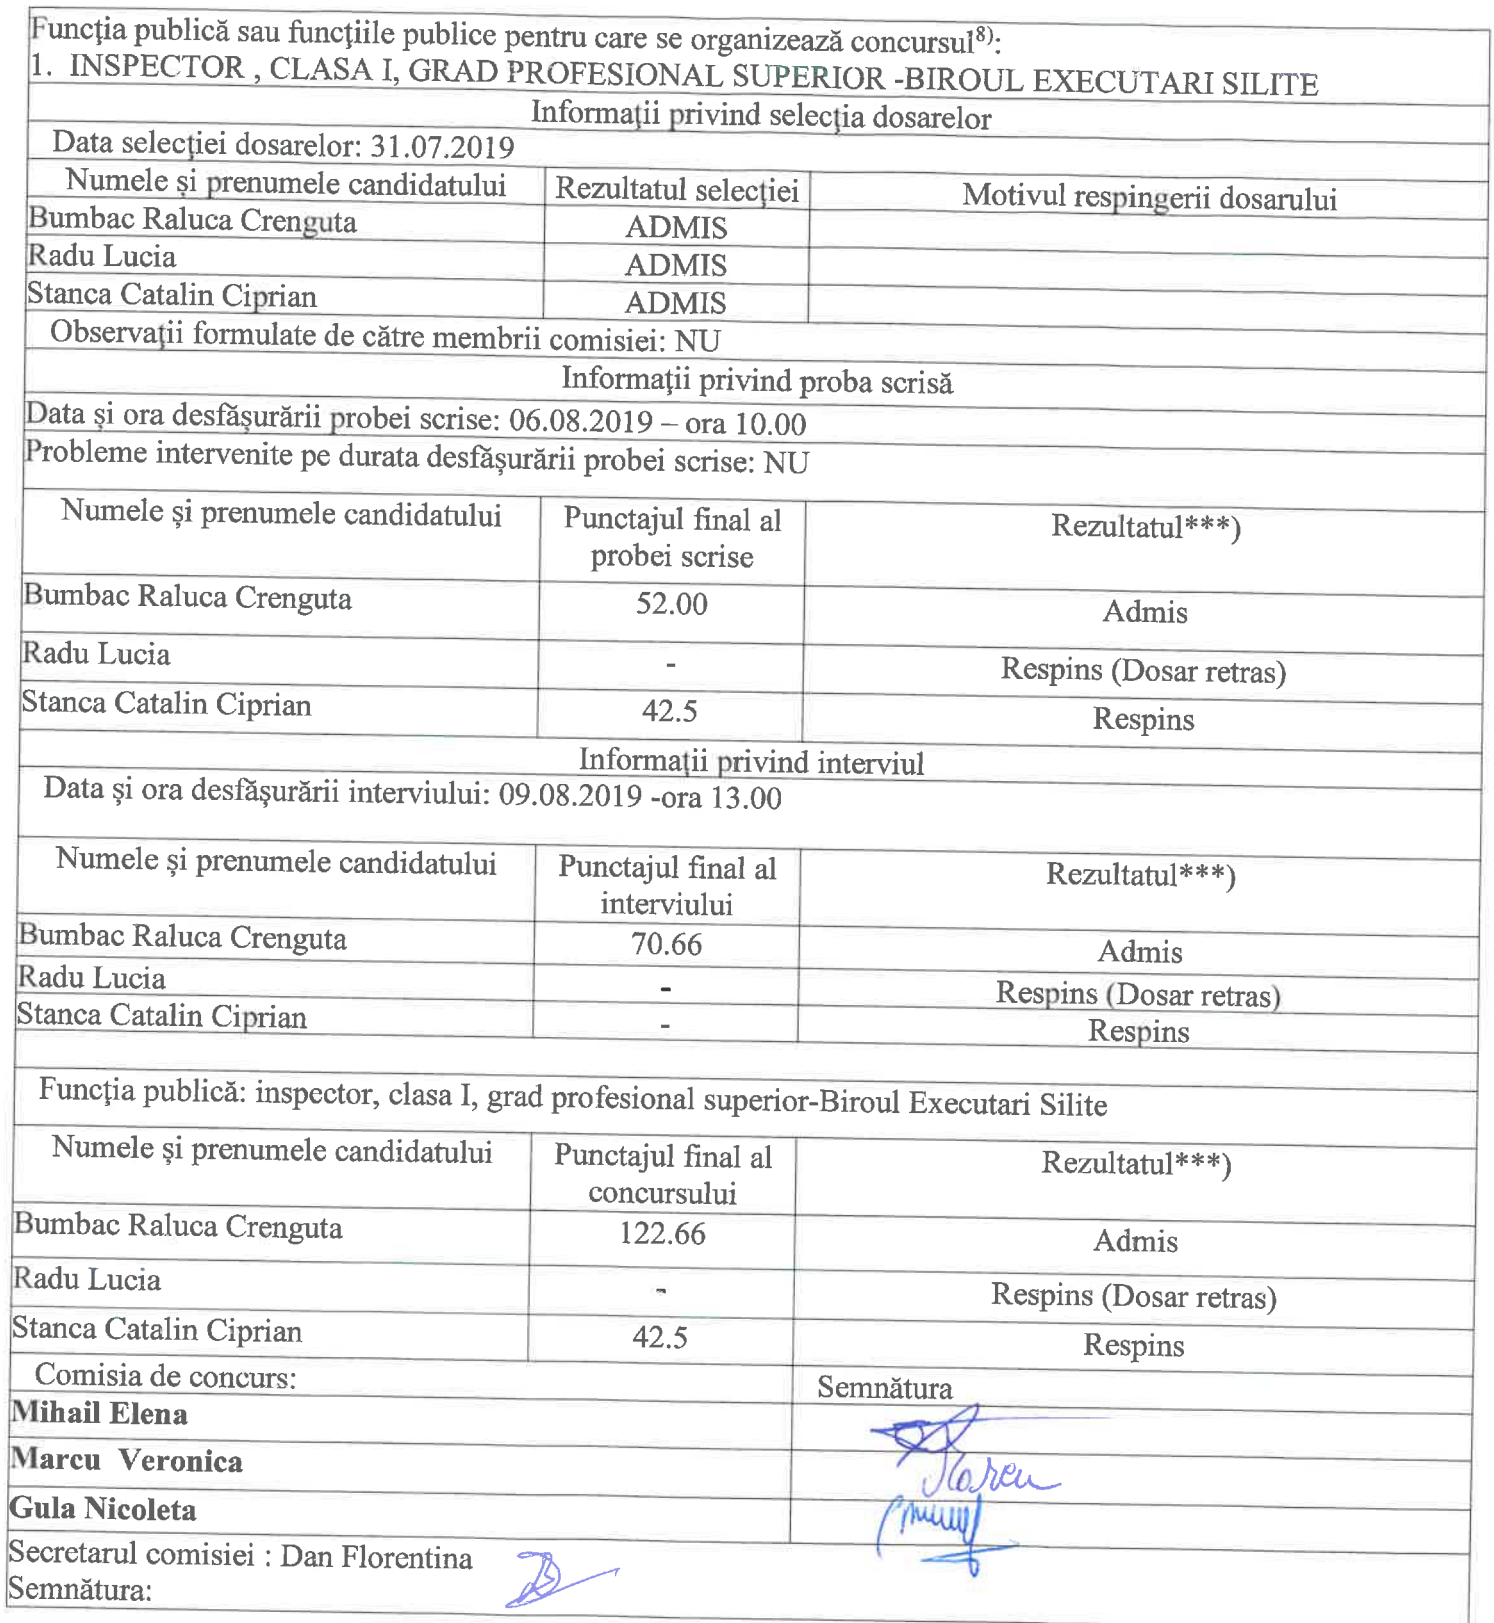 Funcția publică sau funcțiile publice pentru care se organizează concursul⁸⁾:
1. INSPECTOR , CLASA I, GRAD PROFESIONAL SUPERIOR -BIROUL EXECUTARI SILITE
Informații privind selecția dosarelor
Data selecției dosarelor: 31.07.2019
Numele și prenumele candidatului Rezultatul selecției Motivul respingerii dosarului
Bumbac Raluca Crenguta ADMIS
Radu Lucia ADMIS
Stanca Catalin Ciprian ADMIS
Observații formulate de către membrii comisiei: NU
Informații privind proba scrisă
Data și ora desfășurării probei scrise: 06.08.2019 – ora 10.00
Probleme intervenite pe durata desfășurării probei scrise: NU
Numele și prenumele candidatului Punctajul final al Rezultatul***)
probei scrise
Bumbac Raluca Crenguta 52.00 Admis
Radu Lucia - Respins (Dosar retras)
Stanca Catalin Ciprian 42.5 Respins
Informații privind interviul
Data și ora desfășurării interviului: 09.08.2019 -ora 13.00
Numele și prenumele candidatului Punctajul final al Rezultatul***)
interviului
Bumbac Raluca Crenguta 70.66 Admis
Radu Lucia - Respins (Dosar retras)
Stanca Catalin Ciprian - Respins
Funcția publică: inspector, clasa I, grad profesional superior-Biroul Executari Silite
Numele și prenumele candidatului Punctajul final al Rezultatul***)
concursului
Bumbac Raluca Crenguta 122.66 Admis
Radu Lucia - Respins (Dosar retras)
Stanca Catalin Ciprian 42.5 Respins
Comisia de concurs: Semnătura
Mihail Elena
Marcu Veronica
Gula Nicoleta
Secretarul comisiei : Dan Florentina
Semnătura: